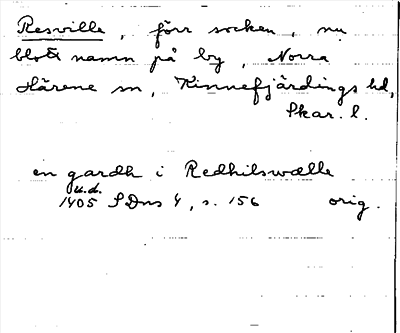 Resville, förr socken, nu
blott namn på by, Norra
Härene sn, Kinnefjärdings hd,
Skar. l.
en gardh i Redhilswælle
u.d.
1405 SDns 4, s. 156 orig.